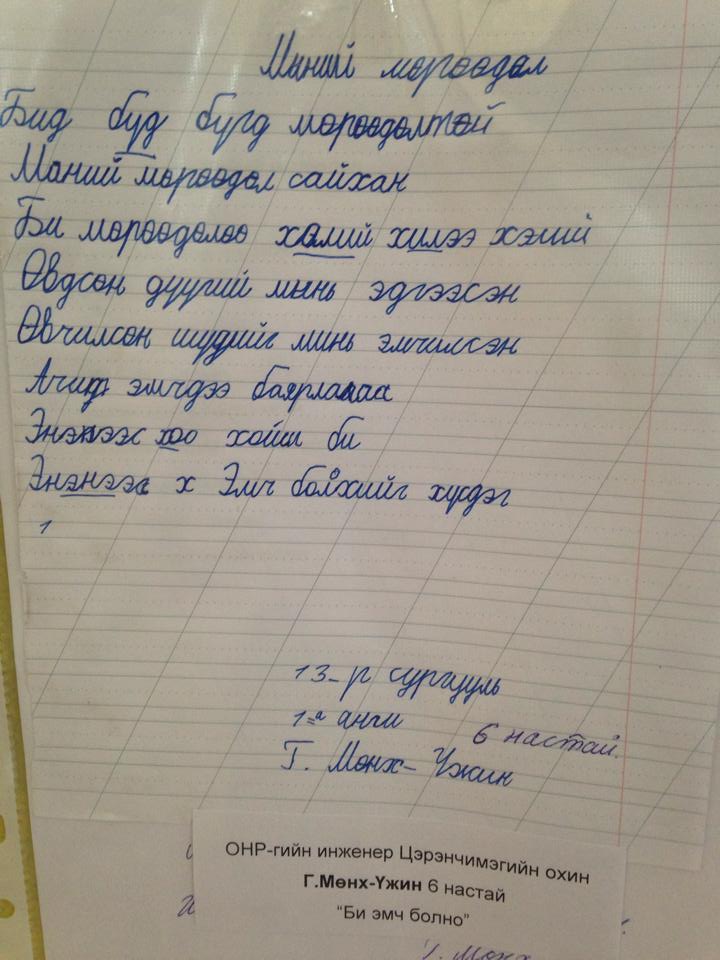 Миний мөрөөдөл
Бид бүд бүрд мөрөөдөлтөй
Маний мөрөөдөл сайхан
Би мөрөөдөлөө хэлий хилээ хэлий
Өвдсөн дүүгий минь эдгээсэн
Өвчилсөн шүдийг минь эмчилсэн
Ачид эмчдээ баярлалаа
Энэнээс хоо хойш би
Энэнээс х Эмч болхийг хүрдэг
1
13-р сургууль
1-а анги
6 настай.
Г. Мөнх-Үжин
ОНР-гийн инженер Цэрэнчимэгийн охин
Г.Мөнх-Үжин 6 настай
"Би эмч болно"